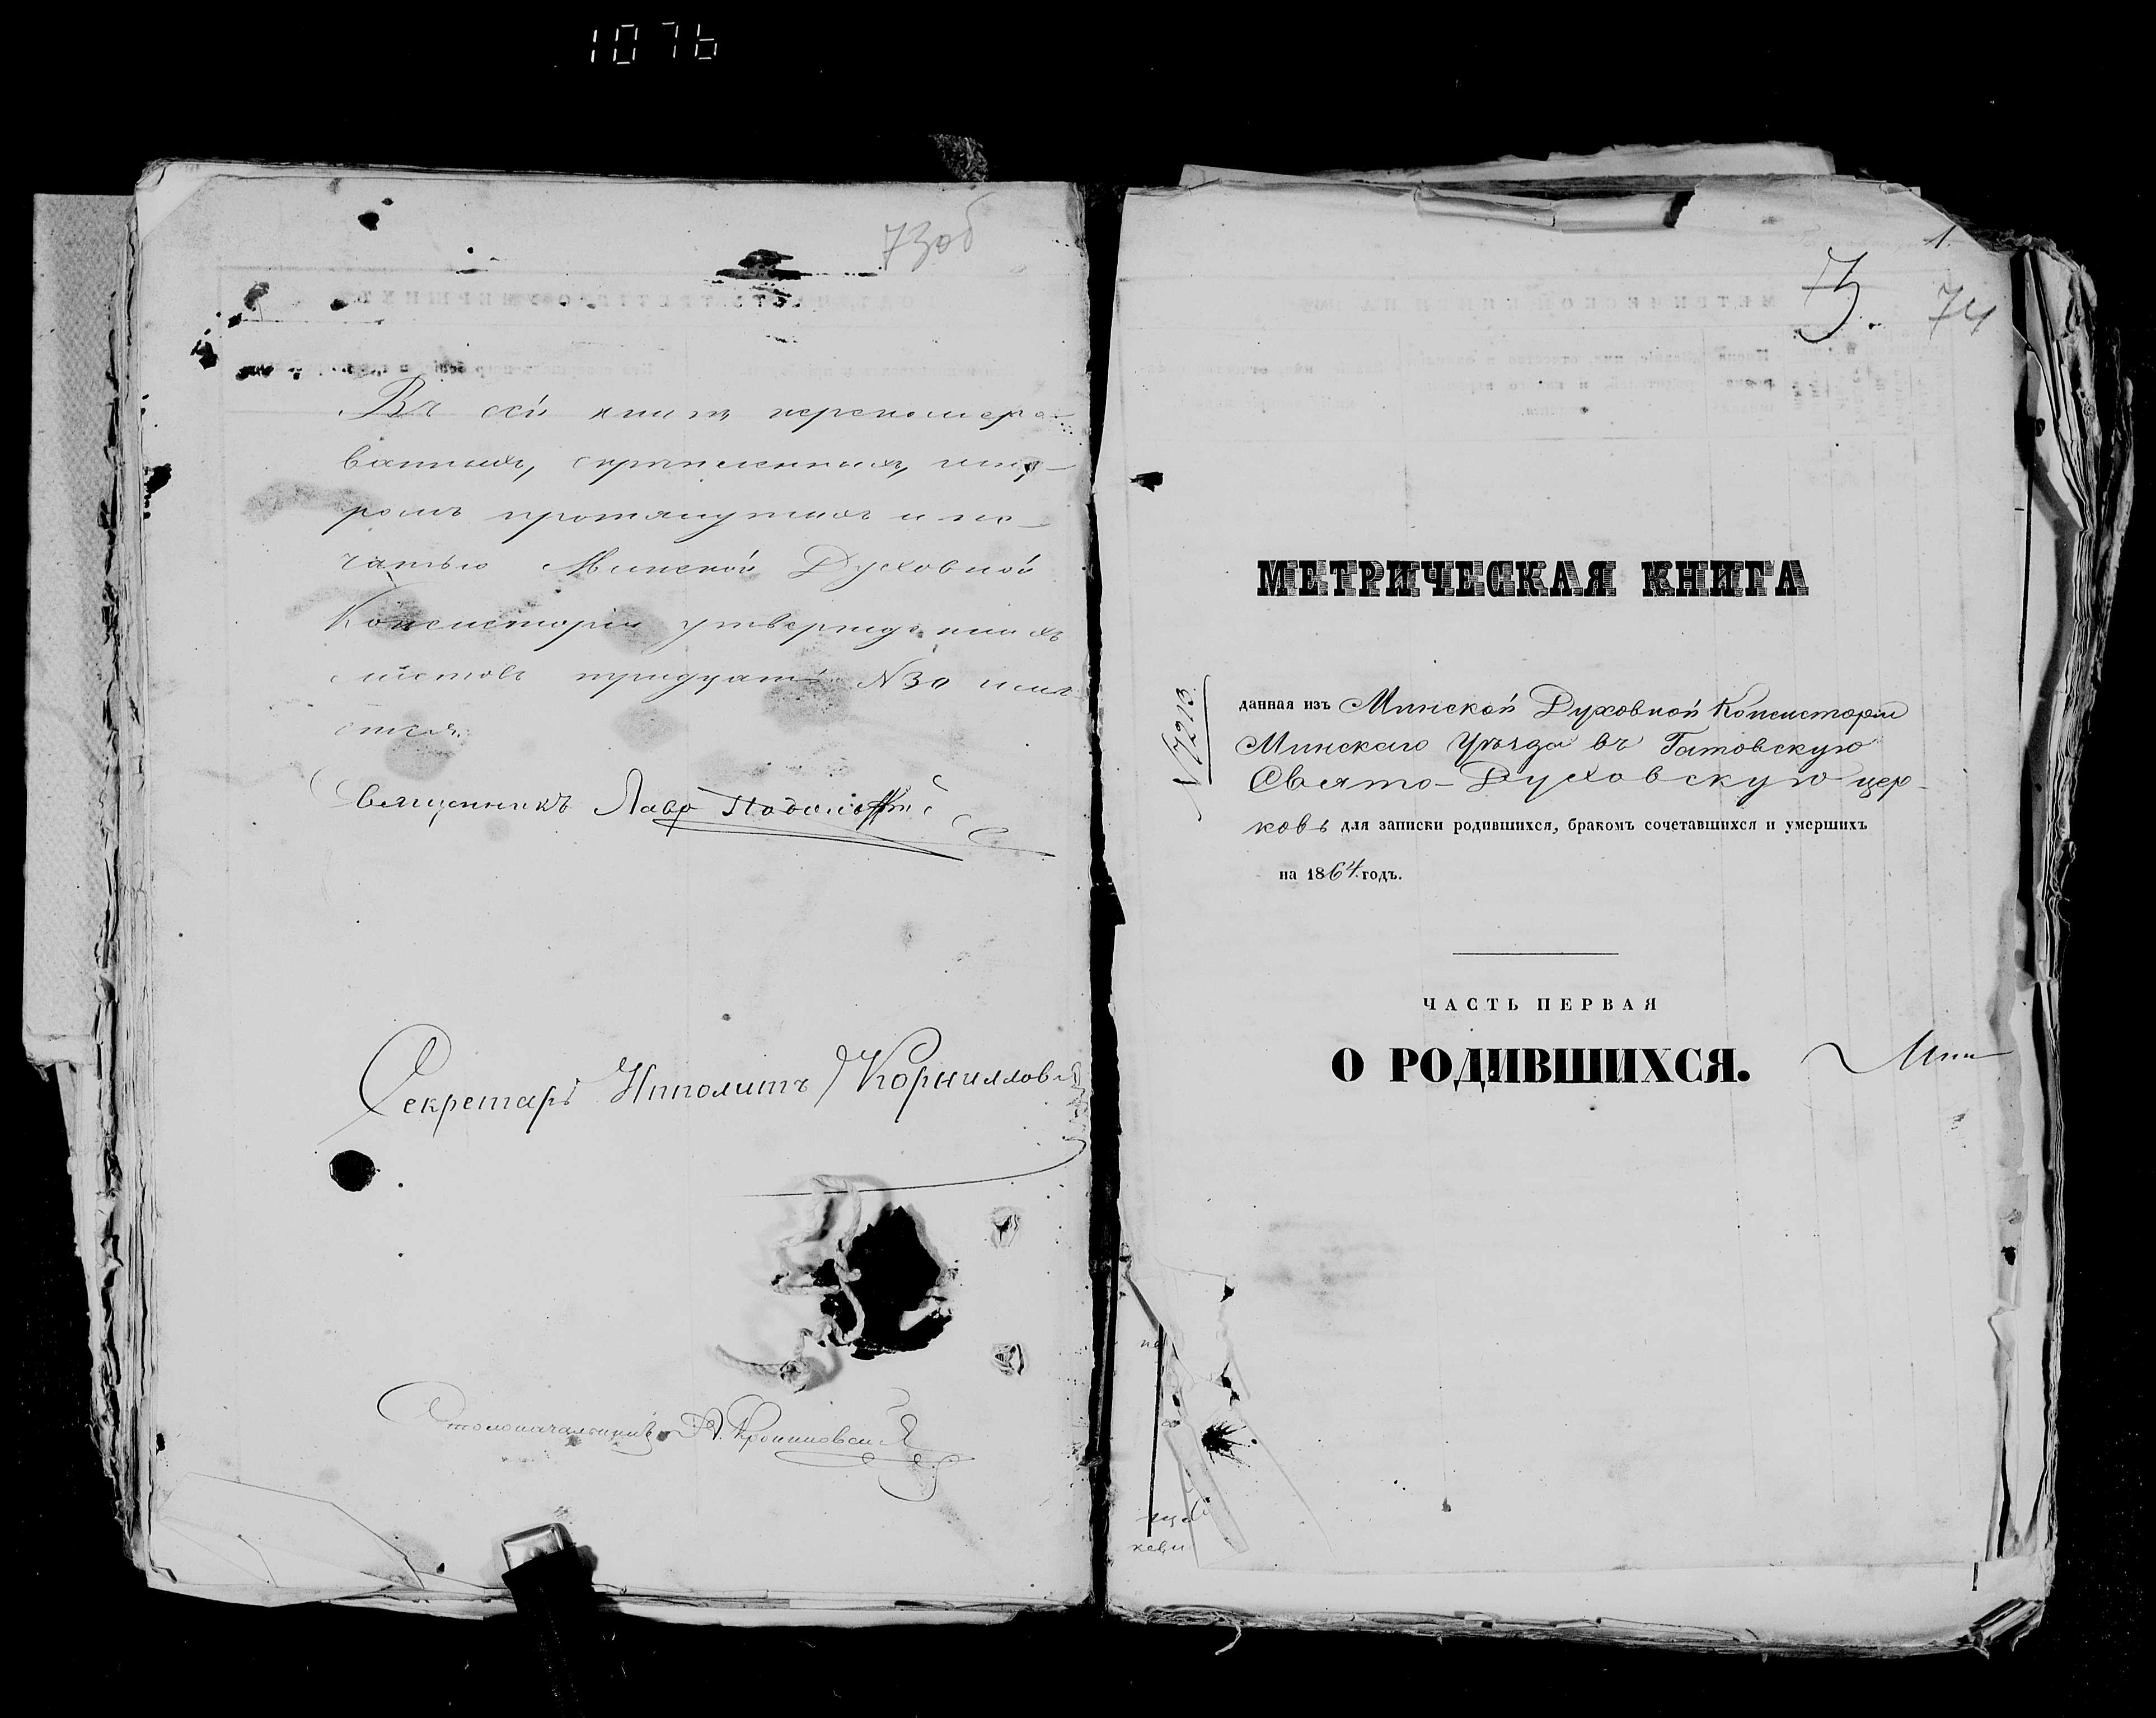 1076
73об
Въ сей книгѣ перенумеро-
ванныхъ, скрѣпленныхъ, шну-
ромъ протянутыхъ и пе-
чатью Минской Духовной
Консисторіи утвержденныхъ
листовъ тридцать № 30 имѣ-
ется.
Священникъ Лавр
Секретарь Ипполитъ Корниллов
Столоначальникъ
1.
73. 74
МЕТРИЧЕСКАЯ КНИГА
№ 7213
данная изъ Минской Духовной Консисторіи
Минскаго Уѣзда въ Гатовскую
Свято-Духовскую цер-
ковь для записки родившихся, бракомъ сочетавшихся и умершихъ
на 1864 годъ.
ЧАСТЬ ПЕРВАЯ
О РОДИВШИХСЯ.
Мин